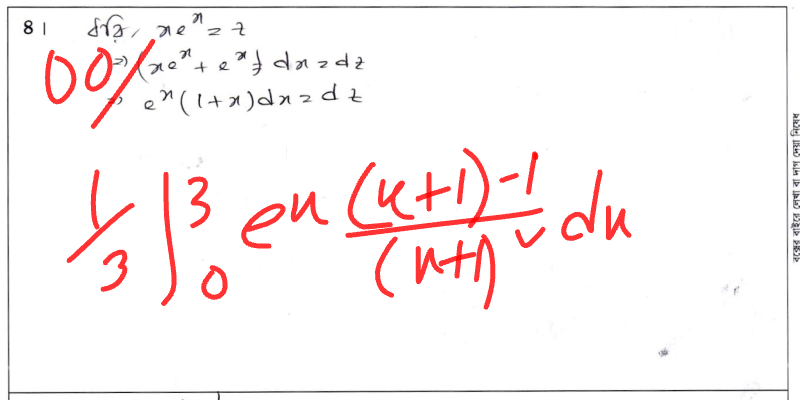 8। ধরি, xe^x = z
⇒ (xe^x + e^x) dx = dz
00/
⇒ e^x (1+x) dx = dz
1/3 ∫_0^3 e^x ((x+1)-1)/(x+1)^2 dx
বক্সের বাইরে লেখা বা দাগ দেয়া নিষেধ